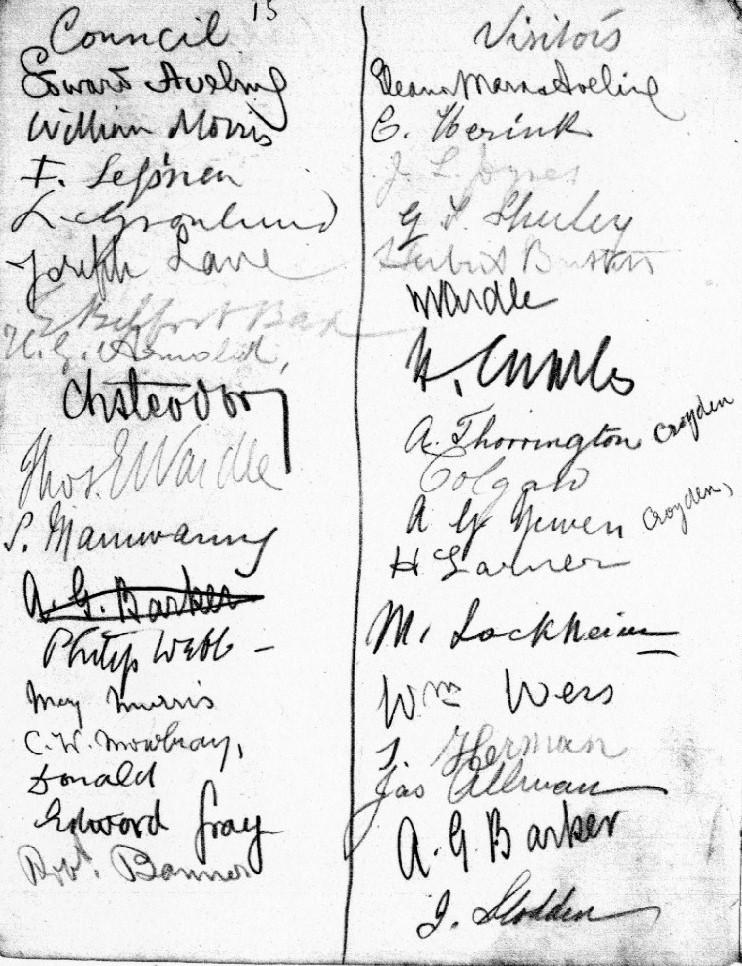 15
Council
Edward Aveling
William Morris
F. Lessner
L. Gronlund
Joseph Lane
E Belfort Bax
H. G. Arnold,
Chsteodor
Thos. E Wardle
S. Mainwaring
A. G. Barker
Philip Webb –
May Morris
C. W. Mowbray,
Donald
Edward Gray
Robt. Banner
Visitors
Eleanor Marx Aveling
C.
J. L. Joynes
G
Wardle
H. Charles
A. Thorrington Croyden
Colgan
A G Croyden,
H Larner
M. Lockheim
Wm Wess
Herman
Jas Allman
A. G. Barker
J. Slodden